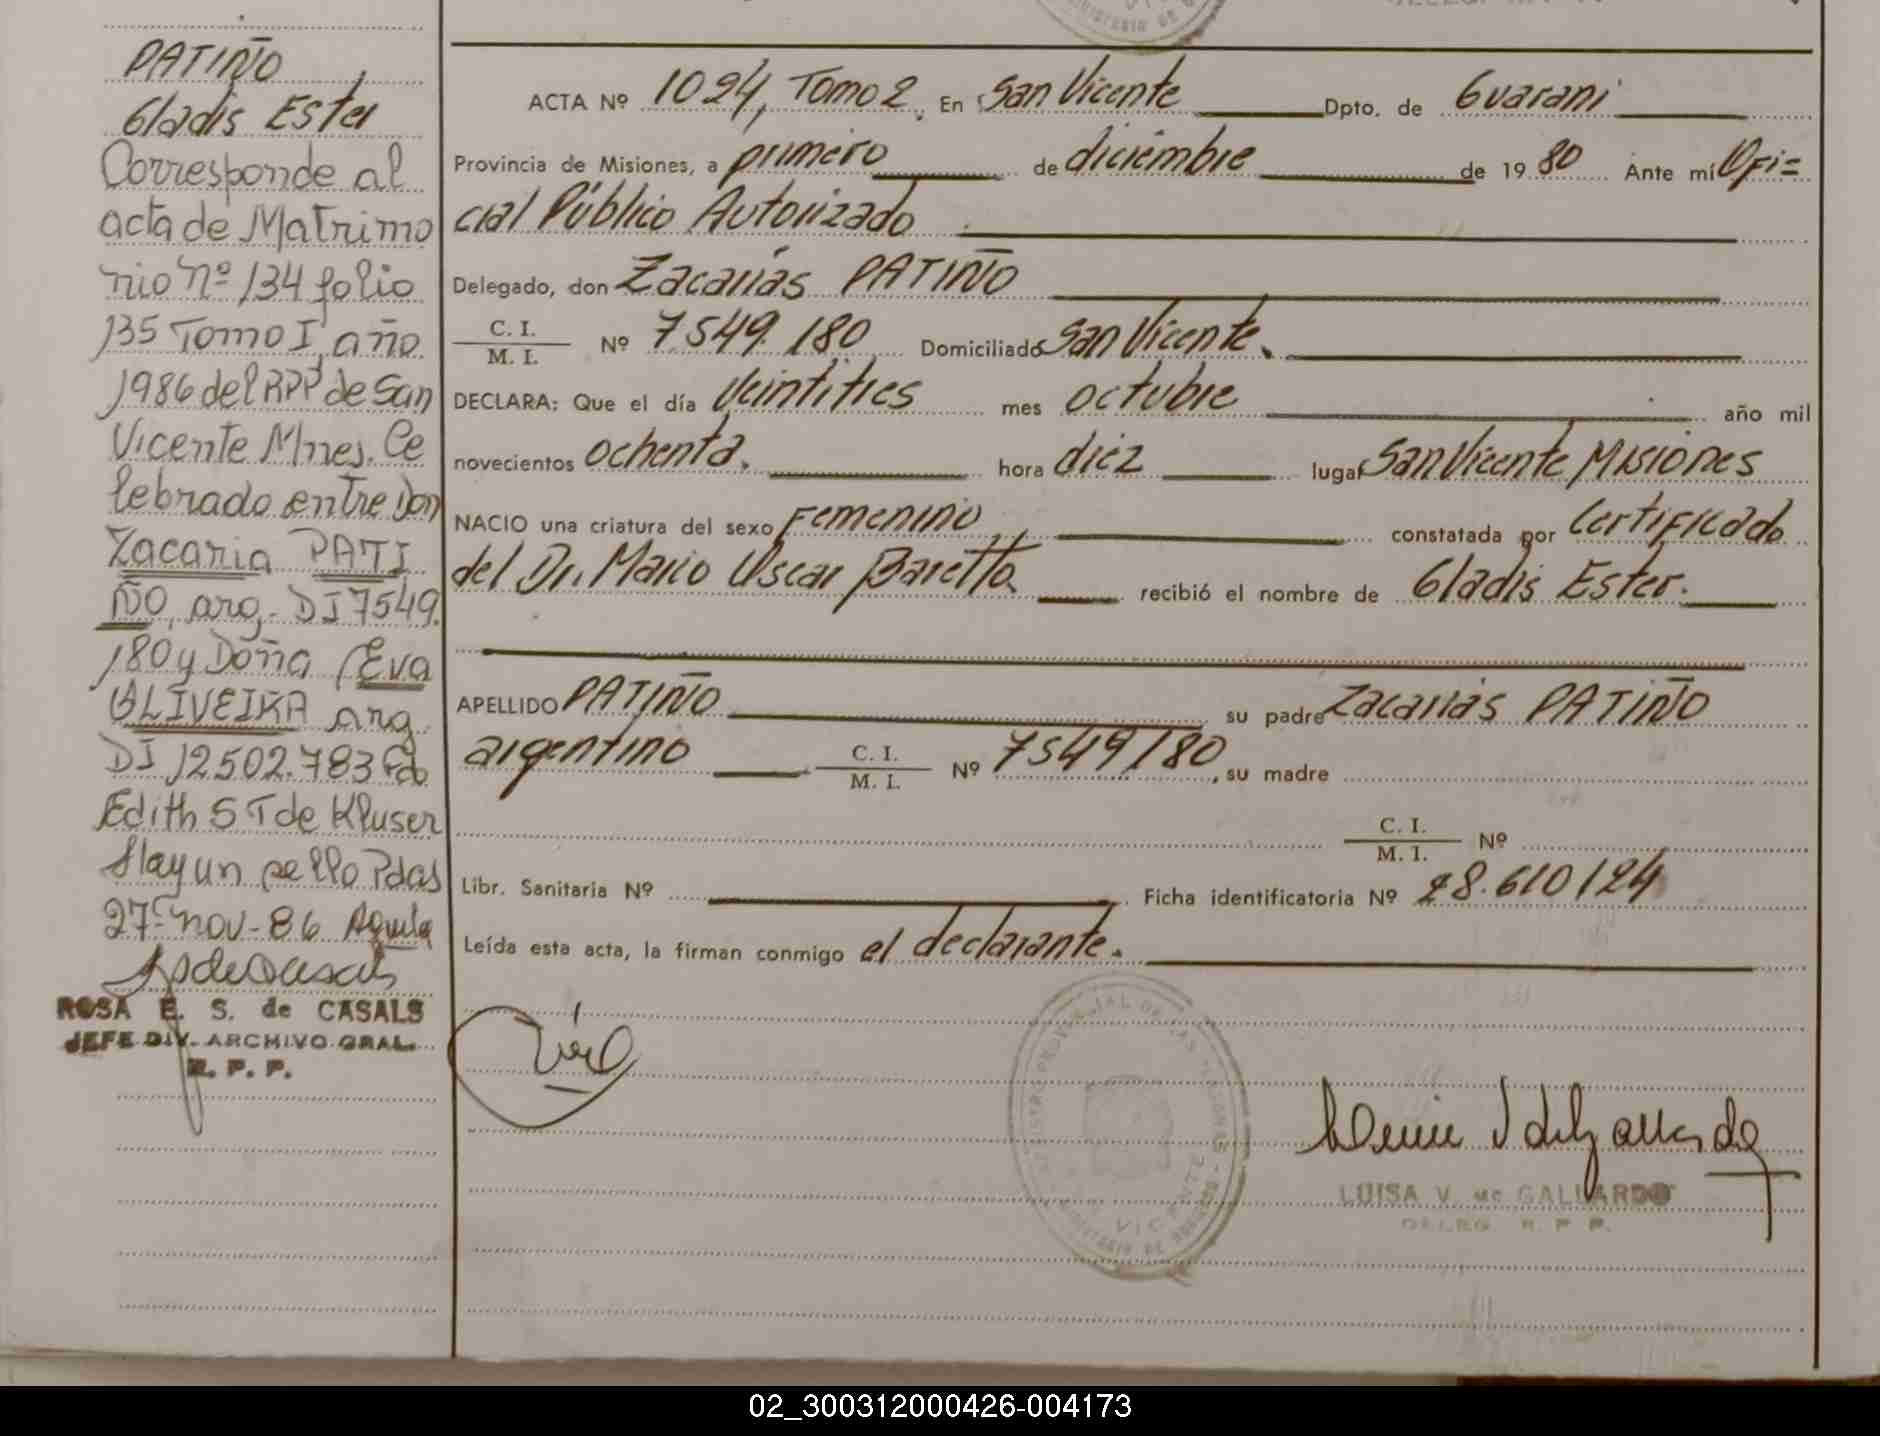 PATIÑO
Gladis Ester
Corresponde al
acta de Matrimo
nio Nº 134 folio
135 Tomo I, año
1986 del RPP de San
Vicente Mnes. Ce
lebrado entre Don
Zacaria PATI
ÑO, arg. DI 7549.
180 y Doña Eva
OLIVEIRA arg.
DI 12502.783 Fdo
Edith S T de Kluser
Hay un sello Pdas
27 nov-86
ROSA E. S. de CASALS
JEFE DIV. ARCHIVO GRAL.
R. P. P.
ACTA Nº 1024, Tomo 2, En San Vicente Dpto. de Guarani
Provincia de Misiones, a primero de diciembre de 19 80 Ante mí Ofi=
cial Público Autorizado
Delegado, don Zacarias PATIÑO
C. I.
M. I. Nº 7549.180 Domiciliado San Vicente.
DECLARA: Que el día Veintitres mes octubre año mil
novecientos ochenta. hora diez lugar San Vicente Misiones
NACIO una criatura del sexo Femenino, constatada por Certificado
del Dr. Mario Oscar Baretto recibió el nombre de Gladis Ester.
APELLIDO PATIÑO su padre Zacarias PATIÑO
argentino C. I.
M. I. Nº 7549180, su madre
C. I.
M. I. Nº
Libr. Sanitaria Nº Ficha identificatoria Nº 28.610124
Leída esta acta, la firman conmigo el declarante.
VICENTE
LUISA V. de GALLARDO
DELEG. R. P. P.
02_300312000426-004173